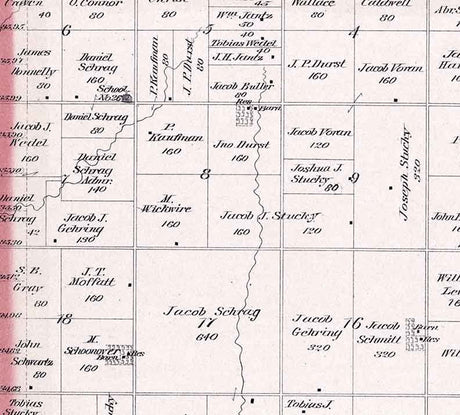 Craven
40
O. Connor
80
80
Wm Jantz
40
45
50
Wallace
80
Caldwell
80
6
5
4
Tobias Wedel
40
James
Donnelly
80
Daniel
Schrag
160
School
No 26
P. Kaufman
80
J. P. Durst
80
J. H. Jantz
Jacob Buller
80
Res
Barn
J. P. Durst
160
Jacob Voran
160
Jacob J.
Wedel
160
Daniel Schrag
80
Daniel
Schrag
Admr.
140
7
P.
Kaufman
160
Jno Durst
160
Jacob Voran
120
Joshua J.
Stucky
80
9
Joseph Stucky
320
Daniel
Schrag
42
Jacob J.
Gehring
130
8
M.
Wickwire
160
Jacob J. Stucky
160
120
S. B.
Gray
80
J. T.
Moffutt
160
Jacob Schrag
17
640
Jacob
Gehring
320
16
Jacob
Schmitt
320
Barn
Res
18
John
Schwartz
80
M.
Schoonover
Barn
Res
160
Tobias
Stucky
Tobias J.